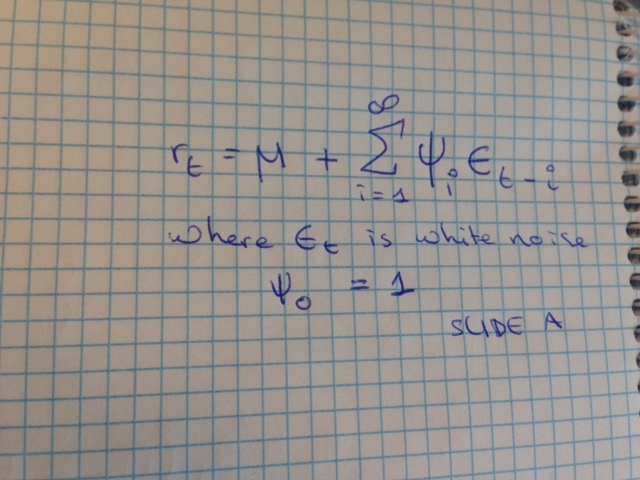 r_t = μ + ∑_{i=1}^{∞} ψ_i ϵ_{t-i}
where ϵ_t is white noise
ψ_0 = 1
SLIDE A